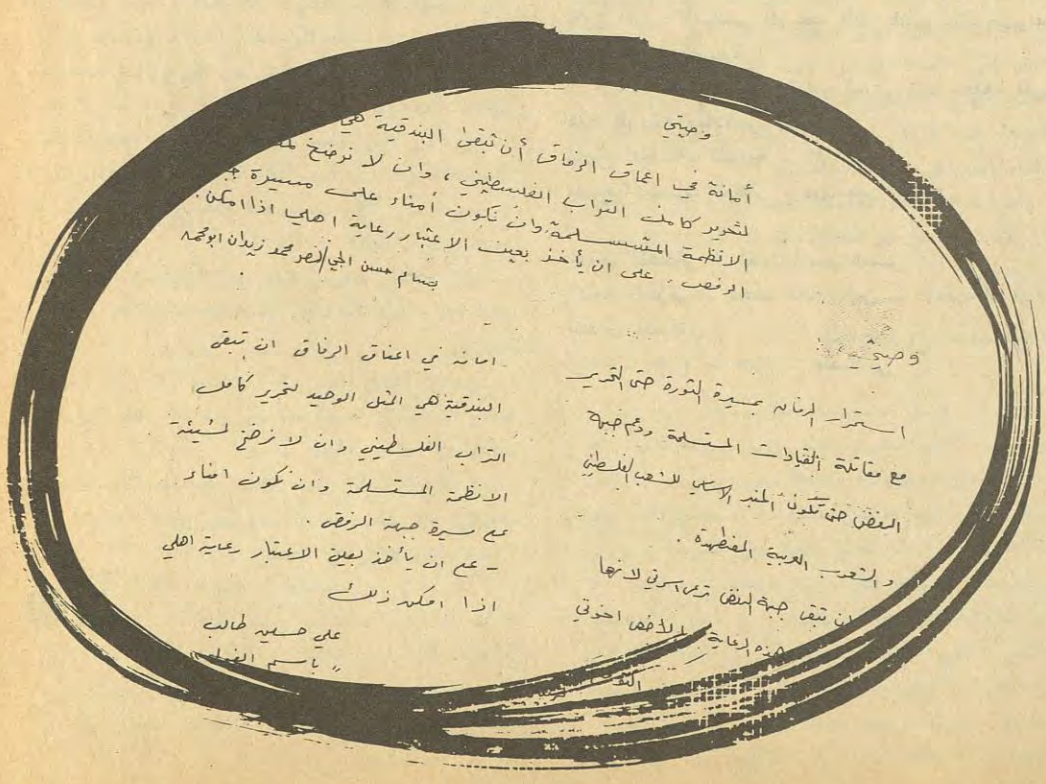 وصيتي
أمانة في اعناق الرفاق أن تبقى البندقية هي
لتحرير كامل التراب الفلسطيني ، وان لا نرضخ
الانظمة المستسلمة وان نكون أمناء على مسيرة
الرفض . على ان يأخذ بعين الاعتبار رعاية اهلي اذا امكن .
بسام حسن محمد زيدان ابو محمد
وصيتي
استمرار الرفاق بمسيرة الثورة حتى التحرير
مع مقاتلة القيادات المستسلمة ودعم جبهة
الرفض حتى تكون الاساسي للشعب الفلسطيني
والشعوب العربية المضطهدة .
ان تبقى جبهة الرفض ترعى اسرتي لانها
هذه الرعاية الاخص اخوتي
امانه في اعناق الرفاق ان تبقى
البندقية هي المثل الوحيد لتحرير كامل
التراب الفلسطيني وان لا نرضخ لمشيئة
الانظمة المستسلمة وان نكون امناء
على مسيرة جبهة الرفض .
- على ان يأخذ بعين الاعتبار رعاية اهلي
اذا امكن ذلك
علي حسين طالب
" باسم